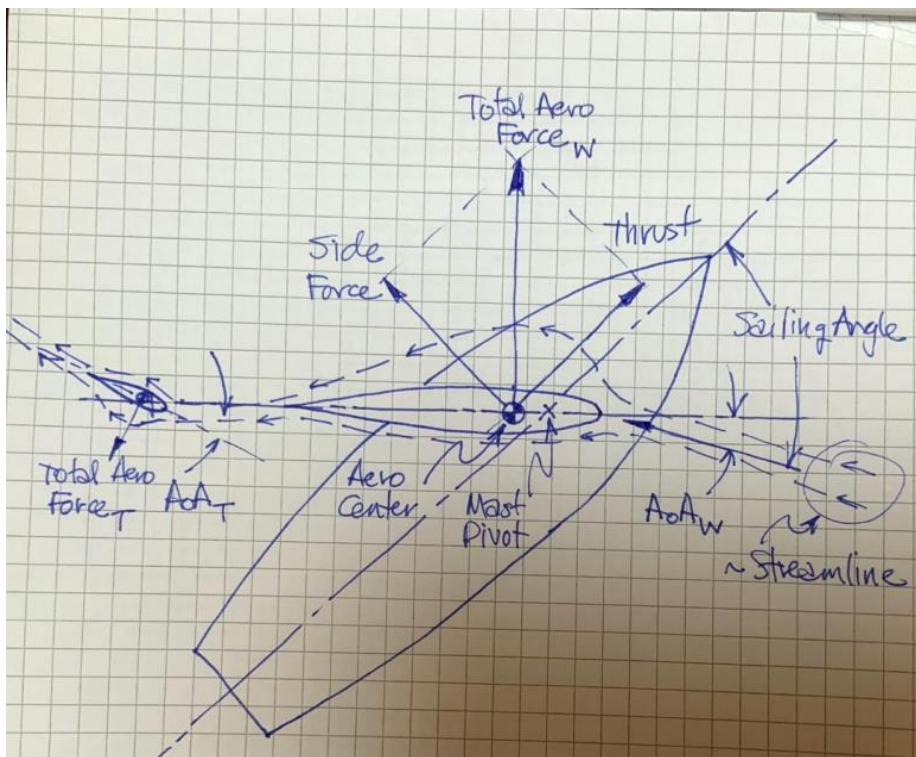 Total Aero
Force W
Thrust
Side
Force
Sailing Angle
Total Aero
Force T
AoA T
Aero
Center
Mast
Pivot
AoA W
~ Streamline